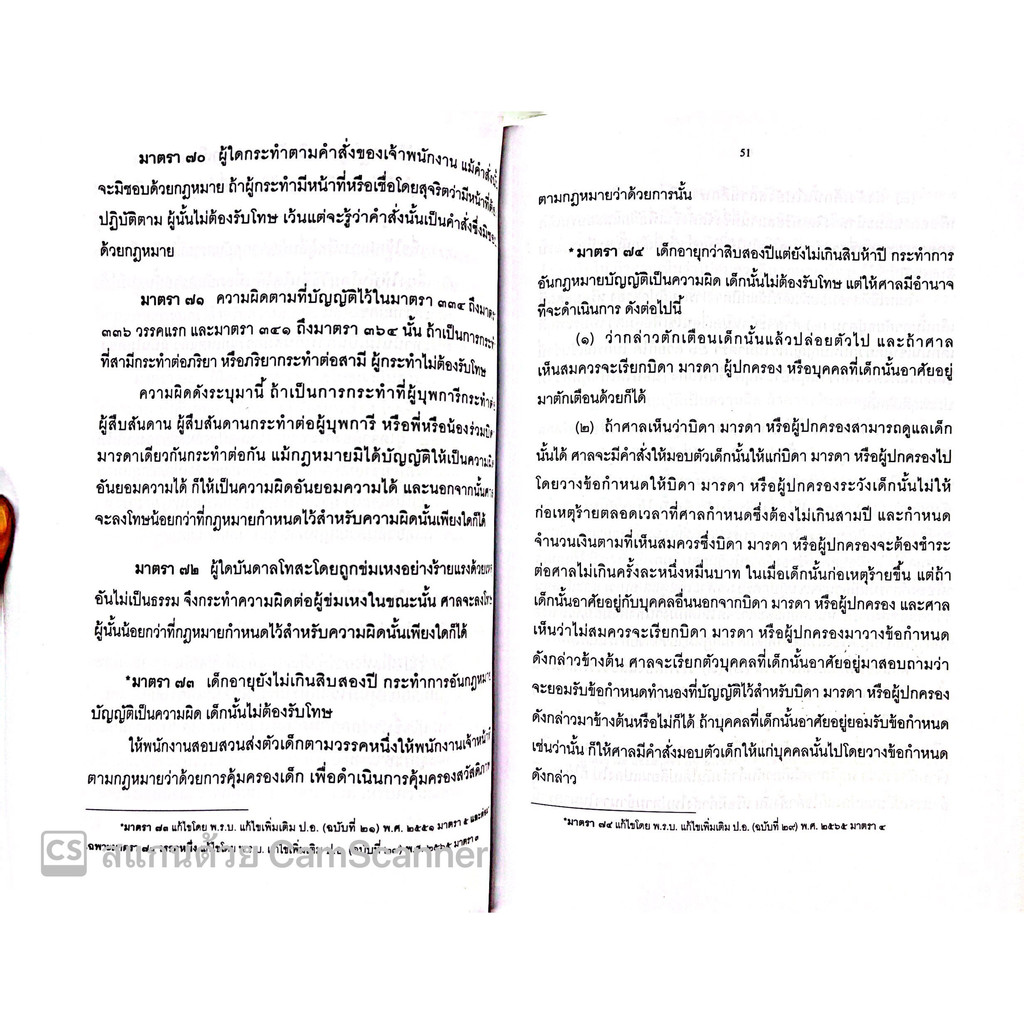 มาตรา ๗๐ ผู้ใดกระทำตามคำสั่งของเจ้าพนักงาน แม้คำสั่งนั้น
จะมิชอบด้วยกฎหมาย ถ้าผู้กระทำมีหน้าที่หรือเชื่อโดยสุจริตว่ามีหน้าที่ต้อง
ปฏิบัติตาม ผู้นั้นไม่ต้องรับโทษ เว้นแต่จะรู้ว่าคำสั่งนั้นเป็นคำสั่งซึ่งมิชอบ
ด้วยกฎหมาย
มาตรา ๗๑ ความผิดตามที่บัญญัติไว้ในมาตรา ๓๓๔ ถึงมาตรา
๓๓๖ วรรคแรก และมาตรา ๓๔๑ ถึงมาตรา ๓๖๔ นั้น ถ้าเป็นการกระทำ
ที่สามีกระทำต่อภริยา หรือภริยากระทำต่อสามี ผู้กระทำไม่ต้องรับโทษ
ความผิดดังระบุมานี้ ถ้าเป็นการกระทำที่ผู้บุพการีกระทำต่อ
ผู้สืบสันดาน ผู้สืบสันดานกระทำต่อผู้บุพการี หรือพี่หรือน้องร่วมบิดา
มารดาเดียวกันกระทำต่อกัน แม้กฎหมายมิได้บัญญัติให้เป็นความผิด
อันยอมความได้ ก็ให้เป็นความผิดอันยอมความได้ และนอกจากนั้นศาล
จะลงโทษน้อยกว่าที่กฎหมายกำหนดไว้สำหรับความผิดนั้นเพียงใดก็ได้
มาตรา ๗๒ ผู้ใดบันดาลโทสะโดยถูกข่มเหงอย่างร้ายแรงด้วยเหตุ
อันไม่เป็นธรรม จึงกระทำความผิดต่อผู้ข่มเหงในขณะนั้น ศาลจะลงโทษ
ผู้นั้นน้อยกว่าที่กฎหมายกำหนดไว้สำหรับความผิดนั้นเพียงใดก็ได้
*มาตรา ๗๓ เด็กอายุยังไม่เกินสิบสองปี กระทำการอันกฎหมาย
บัญญัติเป็นความผิด เด็กนั้นไม่ต้องรับโทษ
ให้พนักงานสอบสวนส่งตัวเด็กตามวรรคหนึ่งให้พนักงานเจ้าหน้าที่
ตามกฎหมายว่าด้วยการคุ้มครองเด็ก เพื่อดำเนินการคุ้มครองสวัสดิภาพ
*มาตรา ๗๓ แก้ไขโดย พ.ร.บ. แก้ไขเพิ่มเติม ป.อ. (ฉบับที่ ๒๑) พ.ศ. ๒๕๕๑ มาตรา ๕ และ
เฉพาะมาตรา ๗๓ วรรคหนึ่ง แก้ไขโดย พ.ร.บ. แก้ไขเพิ่มเติม ป.อ. (ฉบับที่ ๒๙) พ.ศ. ๒๕๖๕ มาตรา ๓
CS สแกนด้วย CamScanner
51
ตามกฎหมายว่าด้วยการนั้น
*มาตรา ๗๔ เด็กอายุกว่าสิบสองปีแต่ยังไม่เกินสิบห้าปี กระทำการ
อันกฎหมายบัญญัติเป็นความผิด เด็กนั้นไม่ต้องรับโทษ แต่ให้ศาลมีอำนาจ
ที่จะดำเนินการ ดังต่อไปนี้
(๑) ว่ากล่าวตักเตือนเด็กนั้นแล้วปล่อยตัวไป และถ้าศาล
เห็นสมควรจะเรียกบิดา มารดา ผู้ปกครอง หรือบุคคลที่เด็กนั้นอาศัยอยู่
มาตักเตือนด้วยก็ได้
(๒) ถ้าศาลเห็นว่าบิดา มารดา หรือผู้ปกครองสามารถดูแลเด็ก
นั้นได้ ศาลจะมีคำสั่งให้มอบตัวเด็กนั้นให้แก่บิดา มารดา หรือผู้ปกครองไป
โดยวางข้อกำหนดให้บิดา มารดา หรือผู้ปกครองระวังเด็กนั้นไม่ให้
ก่อเหตุร้ายตลอดเวลาที่ศาลกำหนดซึ่งต้องไม่เกินสามปี และกำหนด
จำนวนเงินตามที่เห็นสมควรซึ่งบิดา มารดา หรือผู้ปกครองจะต้องชำระ
ต่อศาลไม่เกินครั้งละหนึ่งหมื่นบาท ในเมื่อเด็กนั้นก่อเหตุร้ายขึ้น แต่ถ้า
เด็กนั้นอาศัยอยู่กับบุคคลอื่นนอกจากบิดา มารดา หรือผู้ปกครอง และศาล
เห็นว่าไม่สมควรจะเรียกบิดา มารดา หรือผู้ปกครองมาวางข้อกำหนด
ดังกล่าวข้างต้น ศาลจะเรียกตัวบุคคลที่เด็กนั้นอาศัยอยู่มาสอบถามว่า
จะยอมรับข้อกำหนดทำนองที่บัญญัติไว้สำหรับบิดา มารดา หรือผู้ปกครอง
ดังกล่าวมาข้างต้นหรือไม่ก็ได้ ถ้าบุคคลที่เด็กนั้นอาศัยอยู่ยอมรับข้อกำหนด
เช่นว่านั้น ก็ให้ศาลมีคำสั่งมอบตัวเด็กให้แก่บุคคลนั้นไปโดยวางข้อกำหนด
ดังกล่าว
*มาตรา ๗๔ แก้ไขโดย พ.ร.บ. แก้ไขเพิ่มเติม ป.อ. (ฉบับที่ ๒๙) พ.ศ. ๒๕๖๕ มาตรา ๔